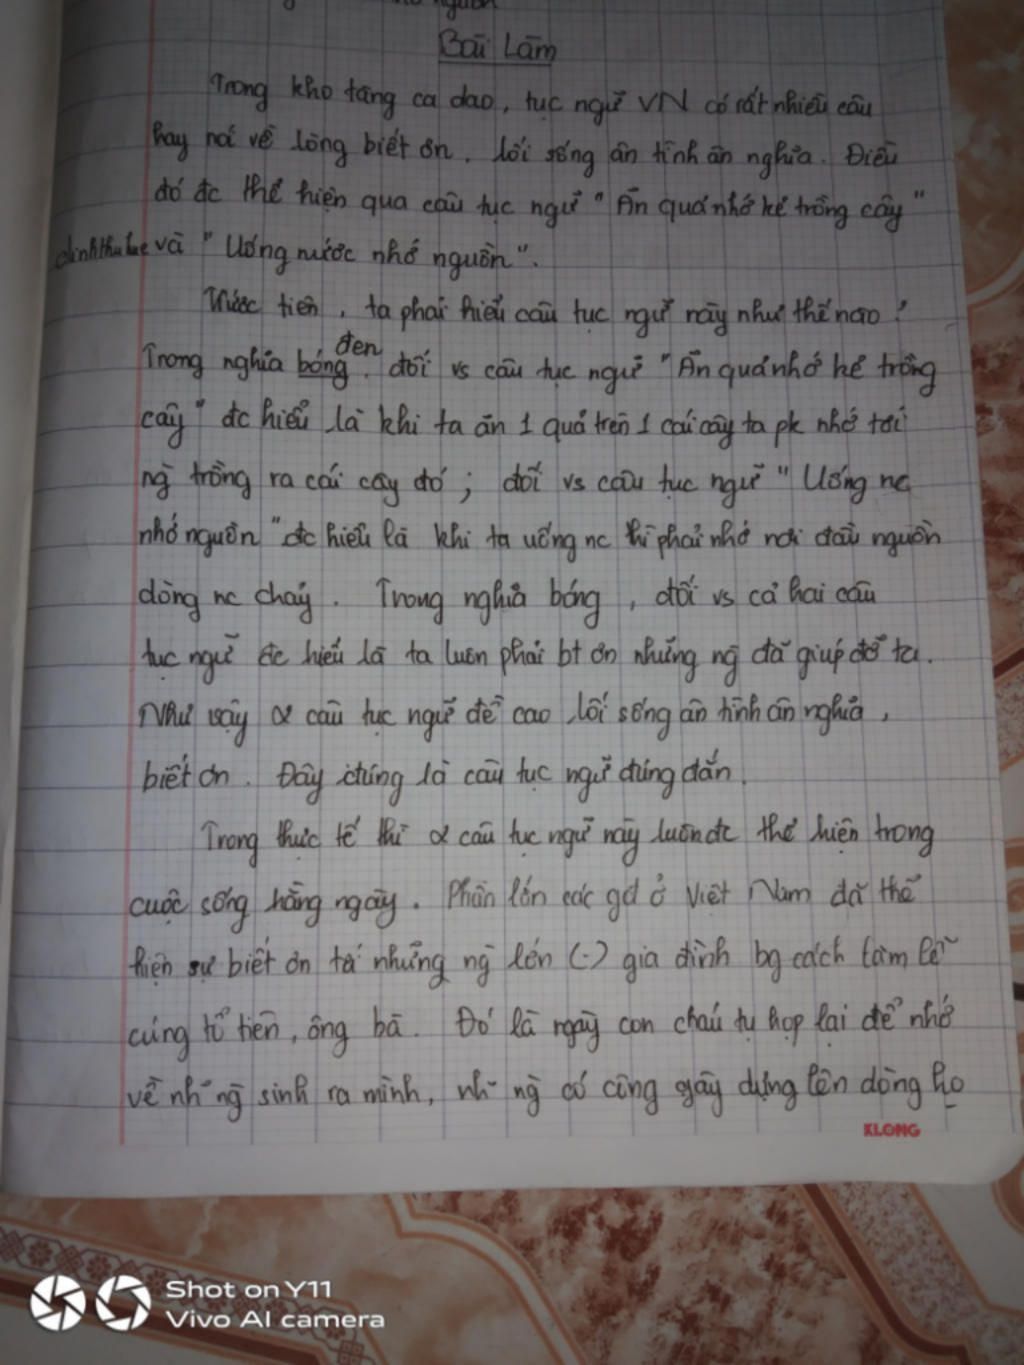 nguồn
Bài Làm
Trong kho tàng ca dao, tục ngữ VN có rất nhiều câu
hay nói về lòng biết ơn, lối sống ân tình ân nghĩa. Điều
đó đc thể hiện qua câu tục ngữ "Ăn quả nhớ kẻ trồng cây"
và "Uống nước nhớ nguồn".
Trước tiên, ta phải hiểu câu tục ngữ này như thế nào?
đen
Trong nghĩa bóng, đối vs câu tục ngữ "Ăn quả nhớ kẻ trồng
cây" đc hiểu là khi ta ăn 1 quả trên 1 cái cây ta pk nhớ tới
ng̀ trồng ra cái cây đó; đối vs câu tục ngữ "Uống nc
nhớ nguồn" đc hiểu là khi ta uống nc thì phải nhớ nơi đầu nguồn
dòng nc chảy. Trong nghĩa bóng, đối vs cả hai câu
tục ngữ đc hiểu là ta luôn phải bt ơn những ng̀ đã giúp đỡ ta.
Như vậy 2 câu tục ngữ đề cao lối sống ân tình ân nghĩa,
biết ơn. Đây chúng là câu tục ngữ đúng đắn.
Trong thực tế thì 2 câu tục ngữ này luôn đc thể hiện trong
cuộc sống hằng ngày. Phần lớn các gđ ở Việt Nam đã thể
hiện sự biết ơn tới những ng̀ lớn (-) gia đình bg cách làm lễ
cúng tổ tiên, ông bà. Đó là ngày con cháu tụ họp lại để nhớ
về nh~ ng̀ sinh ra mình, nh~ ng̀ có công gây dựng lên dòng họ
KLONG
Shot on Y11
Vivo AI camera